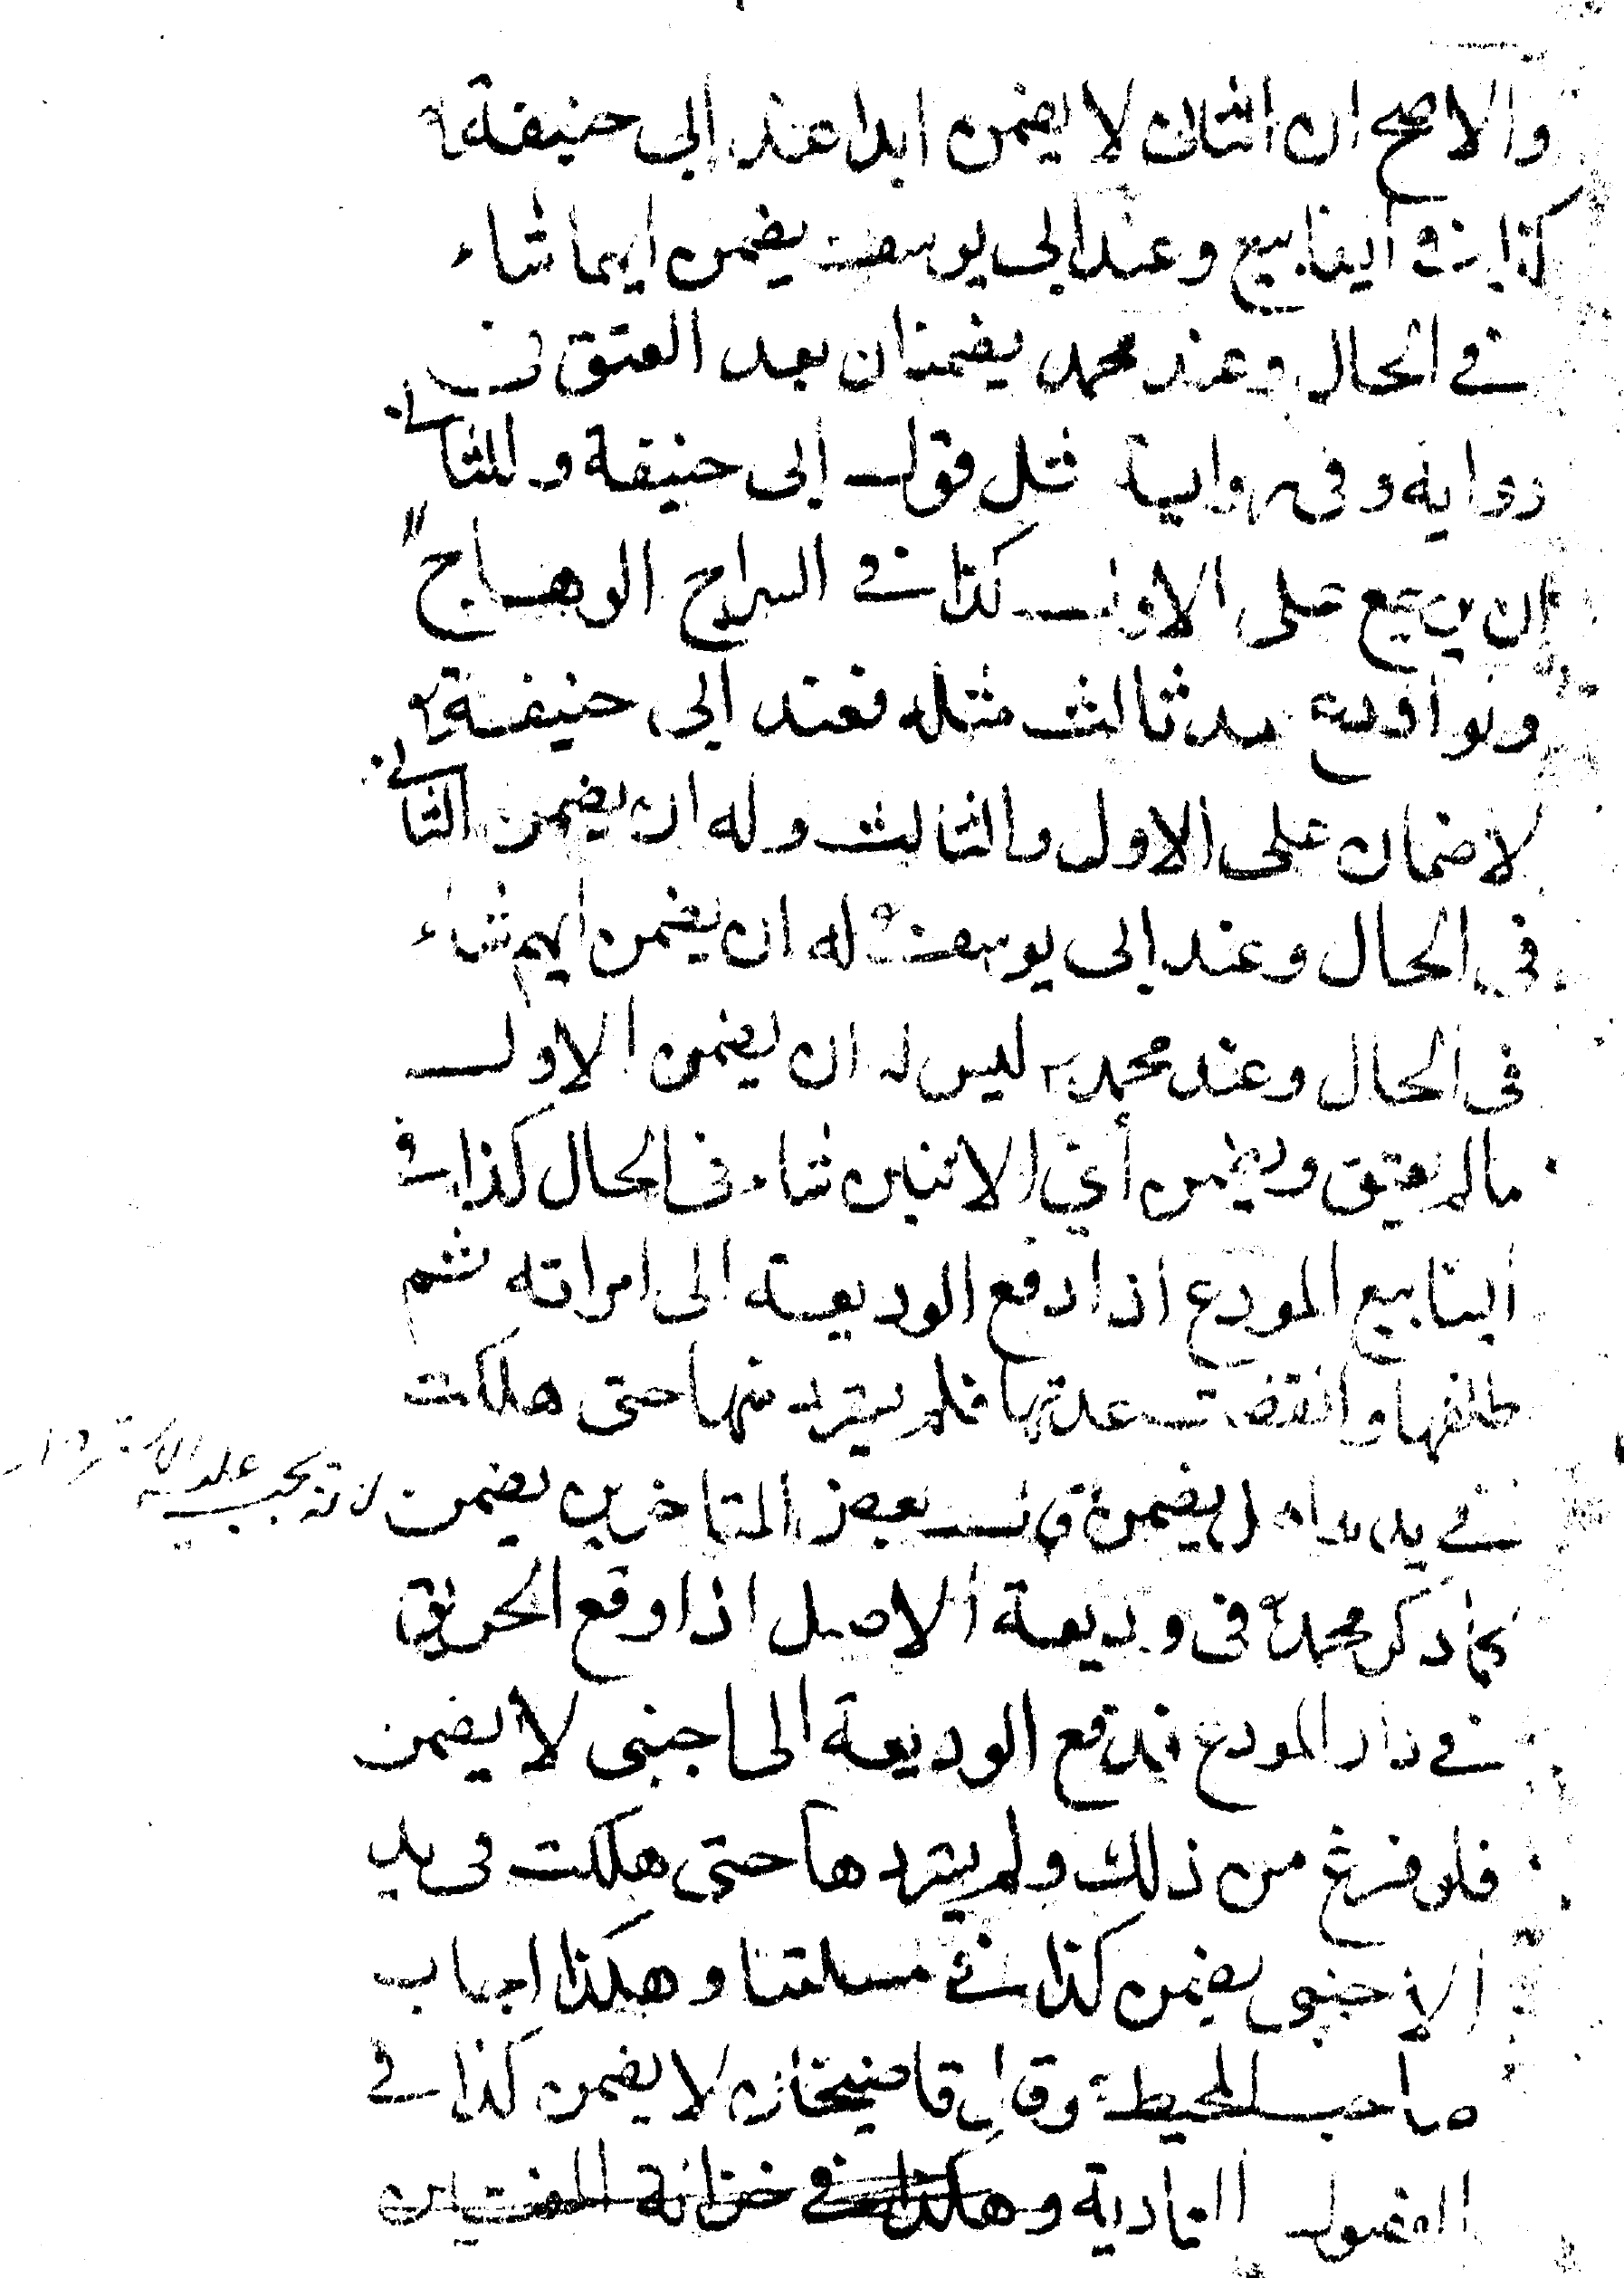 والاصح ان الثانى لا يضمن ابدا عند ابى حنيفة
كذا فى الينابيع وعند ابى يوسف يضمن ايهما شاء
فى الحال وعند محمد يضمنان بعد العتق فى
رواية وفى رواية مثل قول ابى حنيفة وللثانى
ان يرجع على الاول كذا فى السراج الوهاج
ولو اودع عند ثالث مثله فعند ابى حنيفة
لا ضمان على الاول والثالث وله ان يضمن الثانى
فى الحال وعند ابى يوسف له ان يضمن ايهم شاء
فى الحال وعند محمد ليس له ان يضمن الاول
مالم يعتق ويضمن أي الاثنين شاء فى الحال كذا فى
الينابيع المودع اذا دفع الوديعة الى امراته ثم
طلقها وانقضت عدتها فلم يسترد منها حتى هلكت
فى يدها هل يضمن قال بعض المتاخرين يضمن لانه يجب عليه الاسترداد
كما ذكر محمد فى وديعة الاصل اذا وقع الحريق
فى دار المودع فدفع الوديعة الى اجنبى لا يضمن
فلو فرغ من ذلك ولم يستردها حتى هلكت فى يد
الاجنبى يضمن كذا فى مسئلتنا وهكذا اجاب
صاحب المحيط وقال قاضيخان لا يضمن كذا فى
الفصول العمادية وهكذا فى خزانة المفتيين